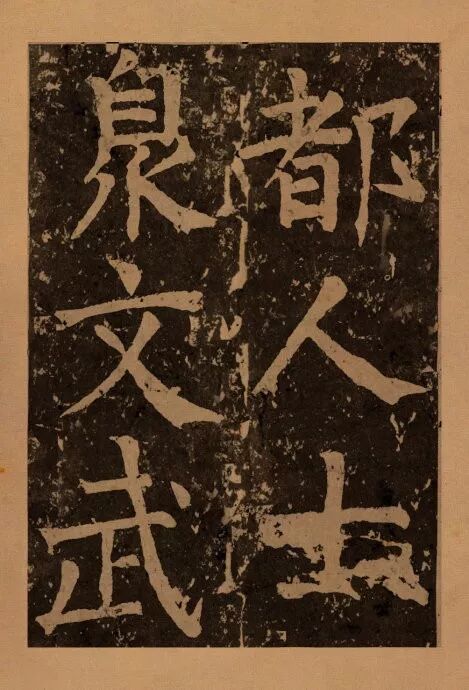 都人士
臮文武